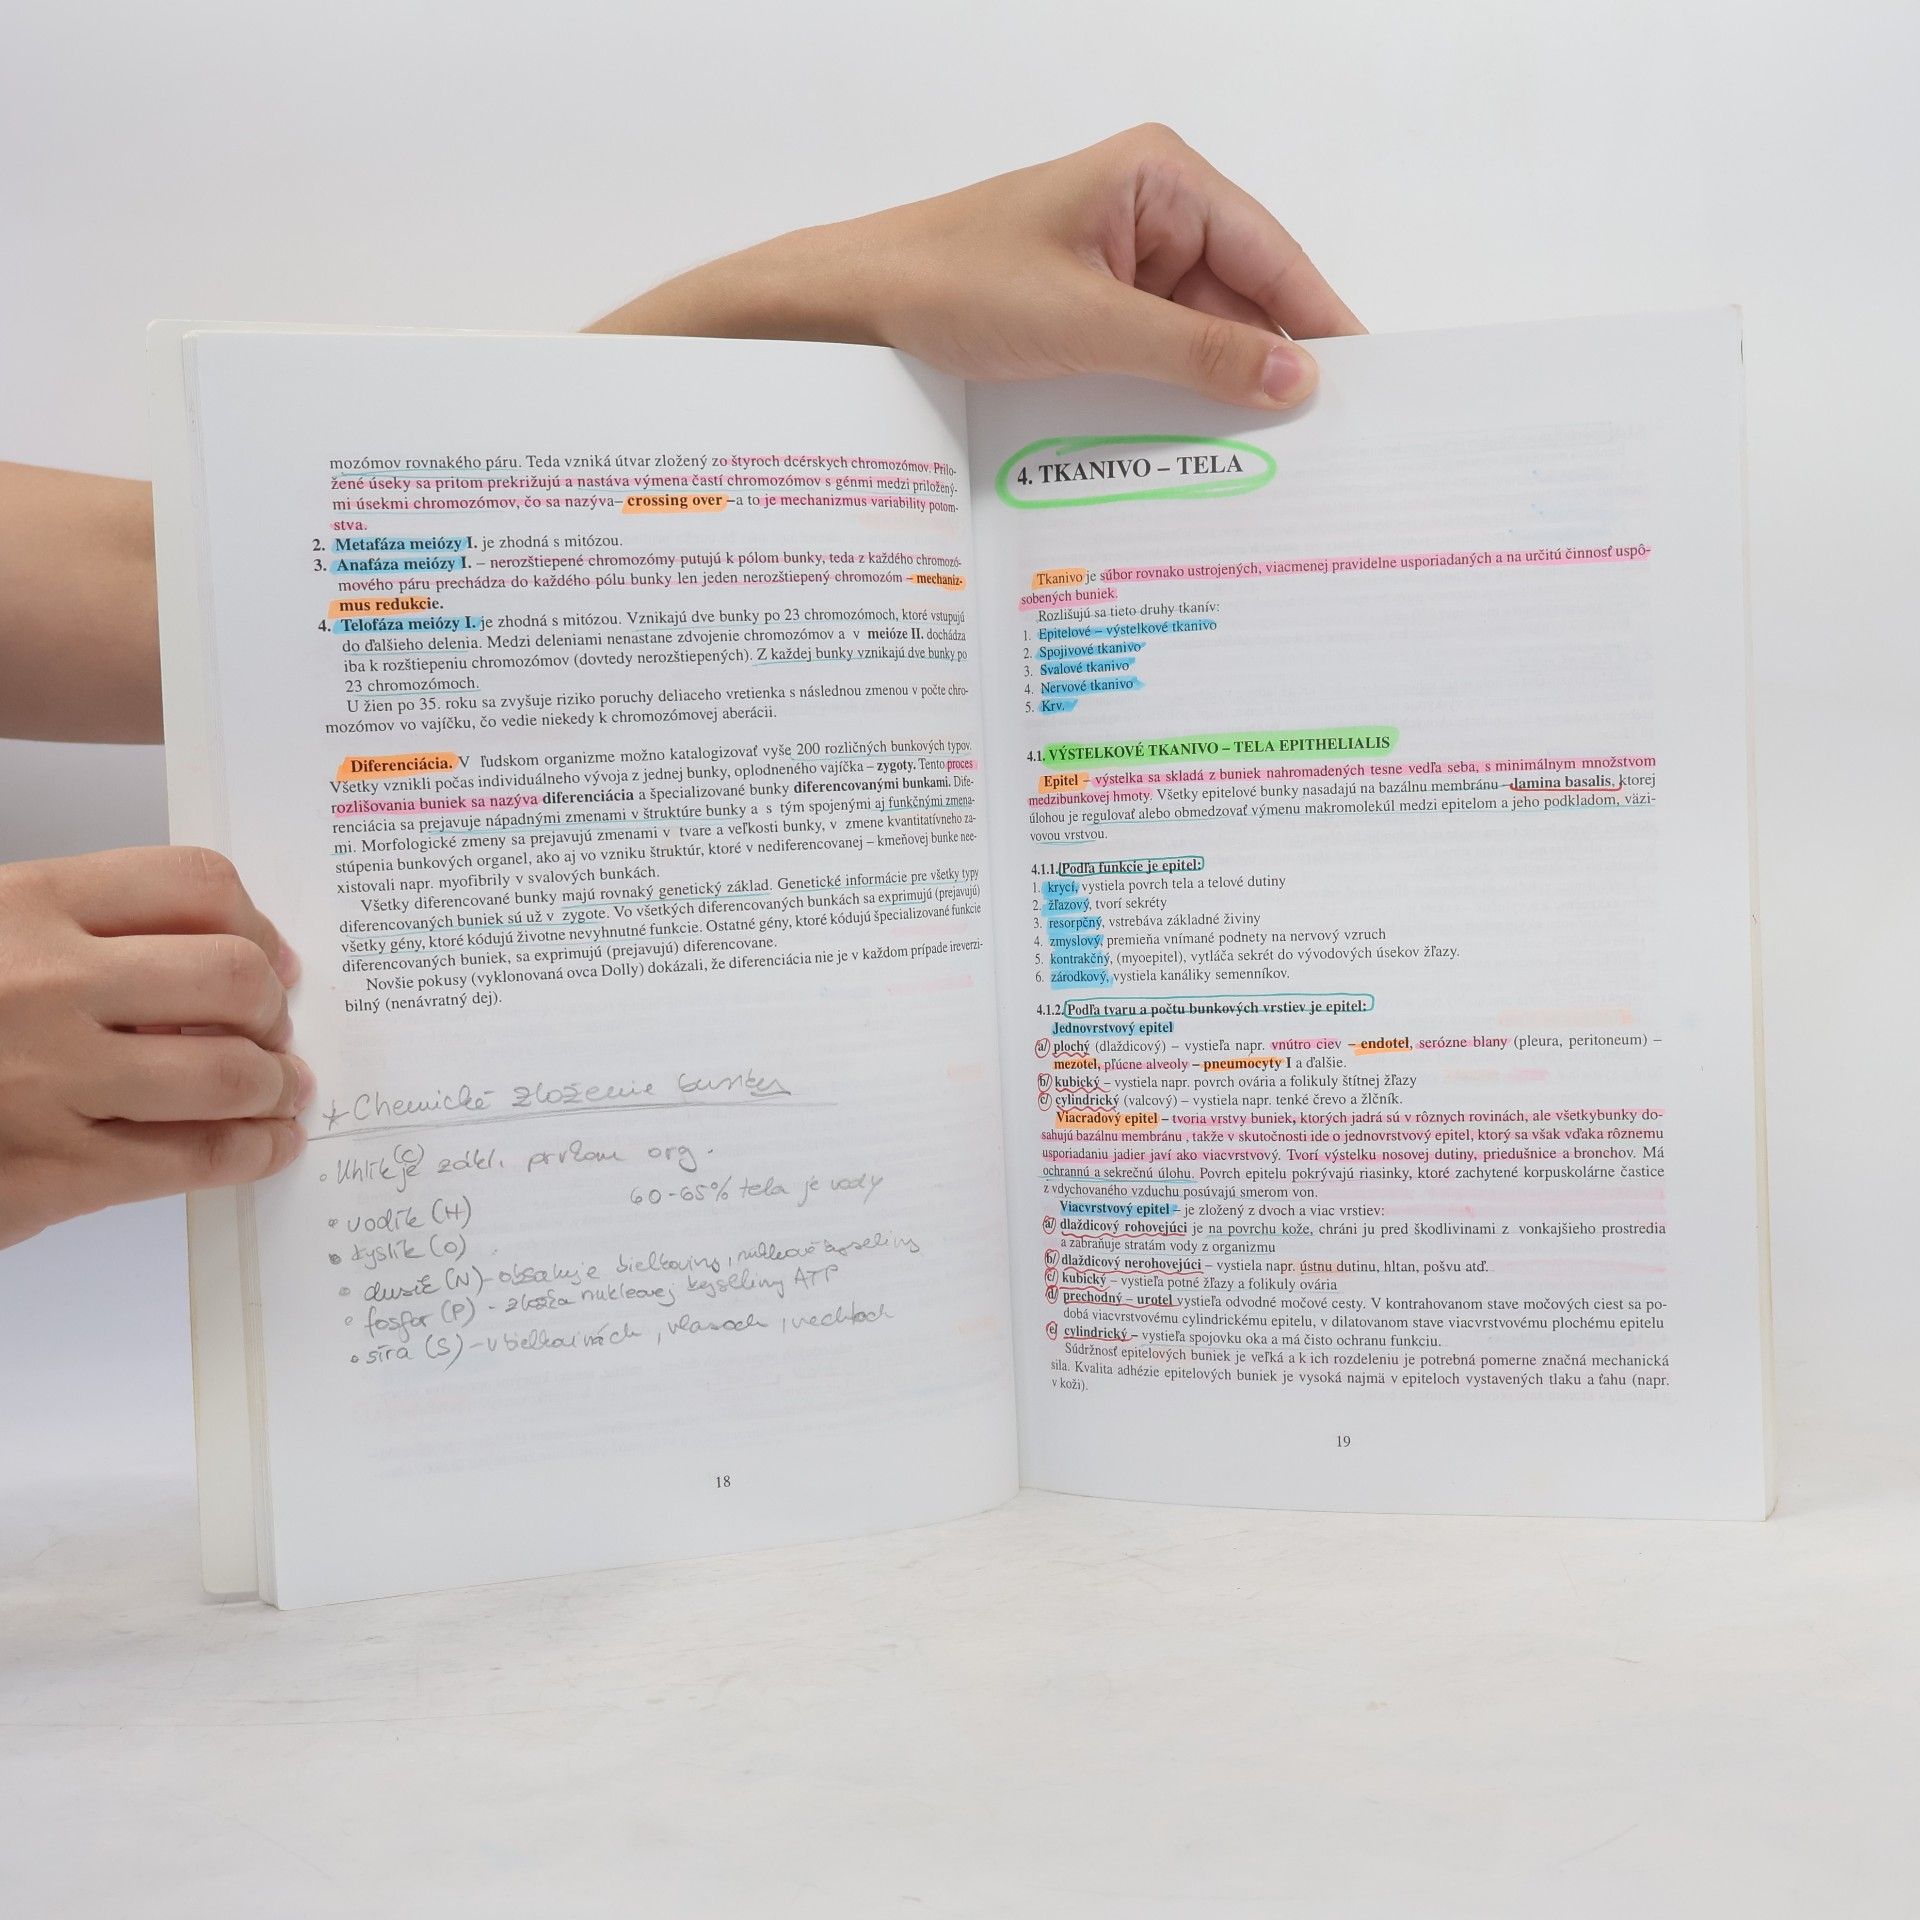 mozómov rovnakého páru. Teda vzniká útvar zložený zo štyroch dcérskych chromozómov. Prilo-
žené úseky sa pritom prekrižujú a nastáva výmena častí chromozómov s génmi medzi priložený-
mi úsekmi chromozómov, čo sa nazýva– crossing over –a to je mechanizmus variability potom-
stva.
2. Metafáza meiózy I. je zhodná s mitózou.
3. Anafáza meiózy I. – nerozštiepené chromozómy putujú k pólom bunky, teda z každého chromozó-
mového páru prechádza do každého pólu bunky len jeden nerozštiepený chromozóm – mechaniz-
mus redukcie.
4. Telofáza meiózy I. je zhodná s mitózou. Vznikajú dve bunky po 23 chromozómoch, ktoré vstupujú
do ďalšieho delenia. Medzi deleniami nenastane zdvojenie chromozómov a v meióze II. dochádza
iba k rozštiepeniu chromozómov (dovtedy nerozštiepených). Z každej bunky vznikajú dve bunky po
23 chromozómoch.
U žien po 35. roku sa zvyšuje riziko poruchy deliaceho vretienka s následnou zmenou v počte chro-
mozómov vo vajíčku, čo vedie niekedy k chromozómovej aberácii.
Diferenciácia. V ľudskom organizme možno katalogizovať vyše 200 rozličných bunkových typov.
Všetky vznikli počas individuálneho vývoja z jednej bunky, oplodneného vajíčka – zygoty. Tento proces
rozlišovania buniek sa nazýva diferenciácia a špecializované bunky diferencovanými bunkami. Dife-
renciácia sa prejavuje nápadnými zmenami v štruktúre bunky a s tým spojenými aj funkčnými zmena-
mi. Morfologické zmeny sa prejavujú zmenami v tvare a veľkosti bunky, v zmene kvantitatívneho za-
stúpenia bunkových organel, ako aj vo vzniku štruktúr, ktoré v nediferencovanej – kmeňovej bunke nee-
xistovali napr. myofibrily v svalových bunkách.
Všetky diferencované bunky majú rovnaký genetický základ. Genetické informácie pre všetky typy
diferencovaných buniek sú už v zygote. Vo všetkých diferencovaných bunkách sa exprimujú (prejavujú)
všetky gény, ktoré kódujú životne nevyhnutné funkcie. Ostatné gény, ktoré kódujú špecializované funkcie
diferencovaných buniek, sa exprimujú (prejavujú) diferencovane.
Novšie pokusy (vyklonovaná ovca Dolly) dokázali, že diferenciácia nie je v každom prípade ireverzi-
bilný (nenávratný dej).
* Chemické zloženie bunky
• Uhlík (C) je zákl. prvkom org.
60-65% tela je vody
• vodík (H)
• kyslík (O)
• dusík (N) – obsahuje bielkoviny, nukleové kyseliny
• fosfor (P) - zložka nukleovej kyseliny ATP
• síra (S) – v bielkovinách, vlasoch, nechtoch
18
4. TKANIVO – TELA
Tkanivo je súbor rovnako ustrojených, viacmenej pravidelne usporiadaných a na určitú činnosť uspô-
sobených buniek.
Rozlišujú sa tieto druhy tkanív:
1. Epitelové – výstelkové tkanivo
2. Spojivové tkanivo
3. Svalové tkanivo
4. Nervové tkanivo
5. Krv.
4.1. VÝSTELKOVÉ TKANIVO – TELA EPITHELIALIS
Epitel – výstelka sa skladá z buniek nahromadených tesne vedľa seba, s minimálnym množstvom
medzibunkovej hmoty. Všetky epitelové bunky nasadajú na bazálnu membránu – lamina basalis, ktorej
úlohou je regulovať alebo obmedzovať výmenu makromolekúl medzi epitelom a jeho podkladom, väzi-
vovou vrstvou.
4.1.1. Podľa funkcie je epitel:
1. krycí, vystiela povrch tela a telové dutiny
2. žľazový, tvorí sekréty
3. resorpčný, vstrebáva základné živiny
4. zmyslový, premieňa vnímané podnety na nervový vzruch
5. kontrakčný, (myoepitel), vytláča sekrét do vývodových úsekov žľazy.
6. zárodkový, vystiela kanáliky semenníkov.
4.1.2. Podľa tvaru a počtu bunkových vrstiev je epitel:
Jednovrstvový epitel
a/ plochý (dlaždicový) – vystieľa napr. vnútro ciev – endotel, serózne blany (pleura, peritoneum) –
mezotel, pľúcne alveoly – pneumocyty I a ďalšie.
b/ kubický – vystiela napr. povrch ovária a folikuly štítnej žľazy
c/ cylindrický (valcový) – vystiela napr. tenké črevo a žlčník.
Viacradový epitel – tvoria vrstvy buniek, ktorých jadrá sú v rôznych rovinách, ale všetkybunky do-
sahujú bazálnu membránu , takže v skutočnosti ide o jednovrstvový epitel, ktorý sa však vďaka rôznemu
usporiadaniu jadier javí ako viacvrstvový. Tvorí výstelku nosovej dutiny, priedušnice a bronchov. Má
ochrannú a sekrečnú úlohu. Povrch epitelu pokrývajú riasinky, ktoré zachytené korpuskolárne častice
z vdychovaného vzduchu posúvajú smerom von.
Viacvrstvový epitel – je zložený z dvoch a viac vrstiev:
a/ dlaždicový rohovejúci je na povrchu kože, chráni ju pred škodlivinami z vonkajšieho prostredia
a zabraňuje stratám vody z organizmu
b/ dlaždicový nerohovejúci – vystiela napr. ústnu dutinu, hltan, pošvu atď.
c/ kubický – vystieľa potné žľazy a folikuly ovária
d/ prechodný – urotel vystieľa odvodné močové cesty. V kontrahovanom stave močových ciest sa po-
dobá viacvrstvovému cylindrickému epitelu, v dilatovanom stave viacvrstvovému plochému epitelu
e/ cylindrický – vystieľa spojovku oka a má čisto ochranu funkciu.
Súdržnosť epitelových buniek je veľká a k ich rozdeleniu je potrebná pomerne značná mechanická
sila. Kvalita adhézie epitelových buniek je vysoká najmä v epiteloch vystavených tlaku a ťahu (napr.
v koži).
19